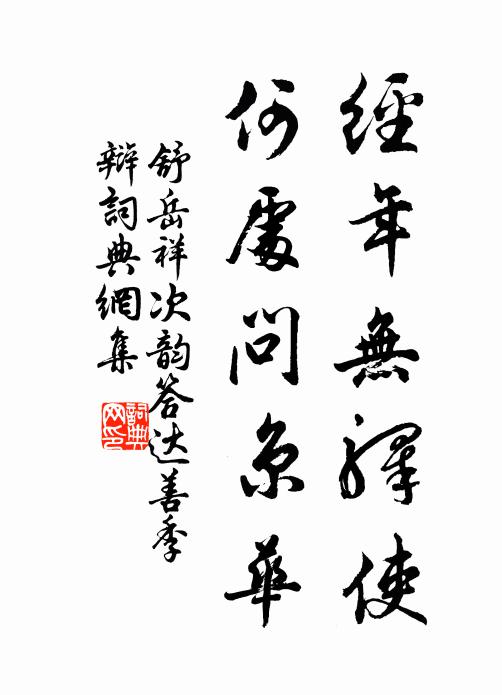 經年無驛使
何處問京華
舒岳祥次韵答达善季
辩詞典網集
詞典网印